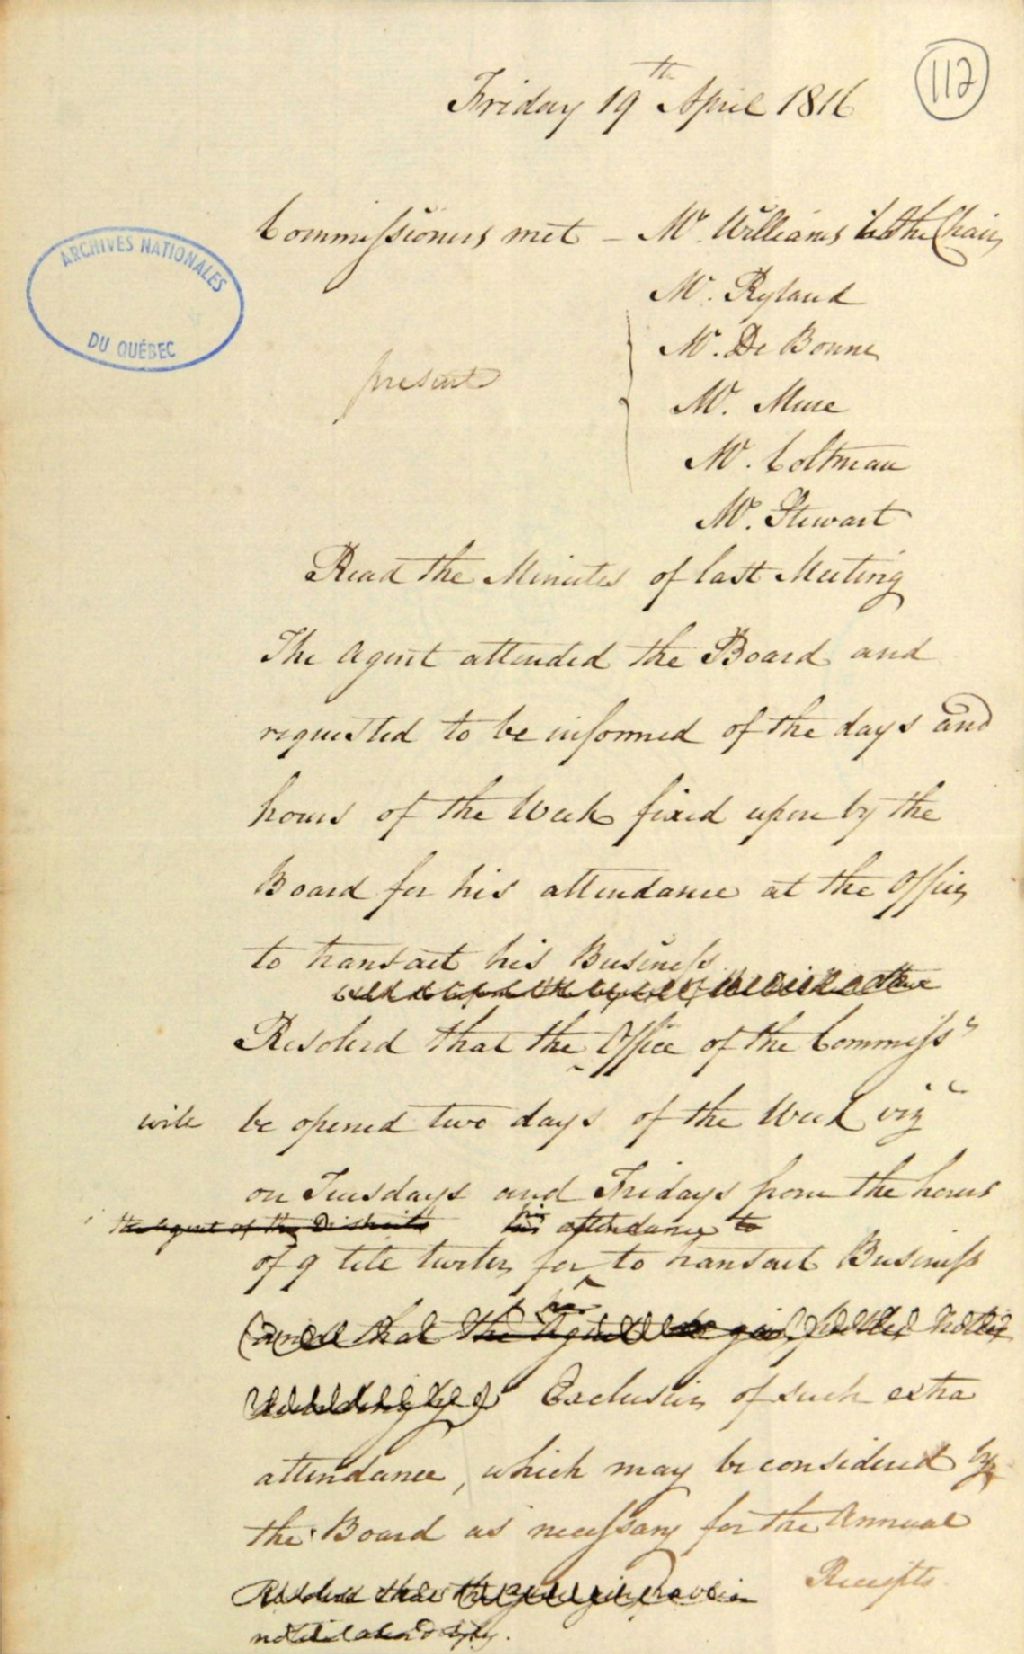 112
Friday 19th April 1816
Commissioners met - Mr. Williams the Chair
ARCHIVES NATIONALES
DU QUÉBEC
Mr. Ryland
Mr. De Bonne
present
Mr. Mure
Mr. Coltman
Mr. Stewart
Read the Minutes of last Meeting
The Agent attended the Board and
requested to be informed of the days and
hours of the Week fixed upon by the
Board for his attendance at the Office
to transact his Business
Resolved that the Office of the Commissrs
will be opened two days of the Week vizt
on Tuesdays and Fridays from the hours
the Agent of the Districts his attendance to
of 9 till twelve for to transact Business
and that the Agent
Exclusive of such extra
attendance, which may be considered by
the Board as necessary for the Annual
Receipts.
Resolved that the